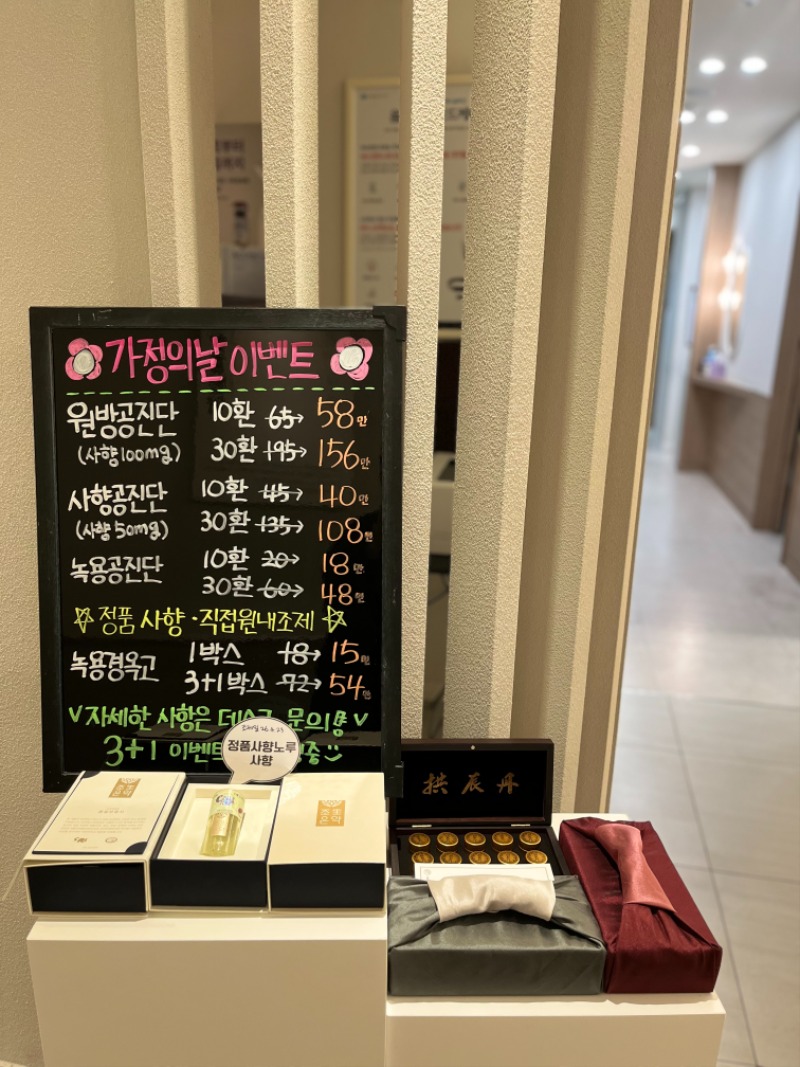 가정의날 이벤트
원방공진단 10환 65→ 58만
(사향100mg) 30환 195→ 156만
사향공진단 10환 45→ 40만
(사향 50mg) 30환 135→ 108만
녹용공진단 10환 20→ 18만
30환 60→ 48만
☆정품 사향·직접원내조제☆
녹용경옥고 1박스 18→ 15만
3+1박스 72→ 54만
V자세한 사항은 문의 V
3+1 이벤트
정품사향노루
사향
拱辰丹